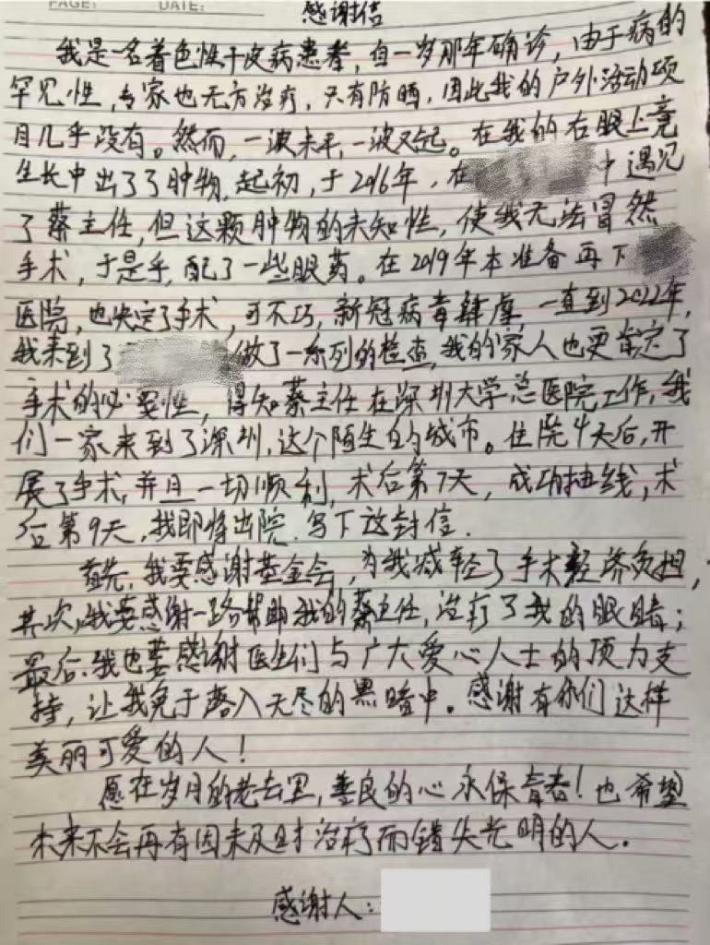 PAGE: DATE:
感谢信
我是一名着色性干皮病患者,自一岁那年确诊,由于病的
罕见性,专家也无方治疗,只有防晒,因此我的户外活动项
目几乎没有。然而,一波未平,一波又起。在我的右眼上竟
生长中出了了肿物,起初,于2016年,在 中遇见
了蔡主任,但这颗肿物的未知性,使我无法冒然
手术,于是乎,配了一些眼药。在2019年本准备再下
医院,也决定了手术,可不巧,新冠病毒肆虐 一直到2022年,
我来到了 做了一系列的检查,我的家人也更肯定了
手术的必要性,得知蔡主任在深圳大学总医院工作,我
们一家来到了深圳,这个陌生的城市。住院4天后,开
展了手术,并且一切顺利,术后第7天,成功抽线,术
后第9天,我即将出院,写下这封信.
首先,我要感谢基金会,为我减轻了手术经济负担,
其次,我要感谢一路帮助我的蔡主任,治疗了我的眼睛;
最后,我也要感谢医生们与广大爱心人士的顶力支
持,让我免于落入无尽的黑暗中。感谢有你们这样
美丽可爱的人!
愿在岁月的老去里,善良的心永保青春!也希望
未来不会再有因未及时治疗而错失光明的人。
感谢人: